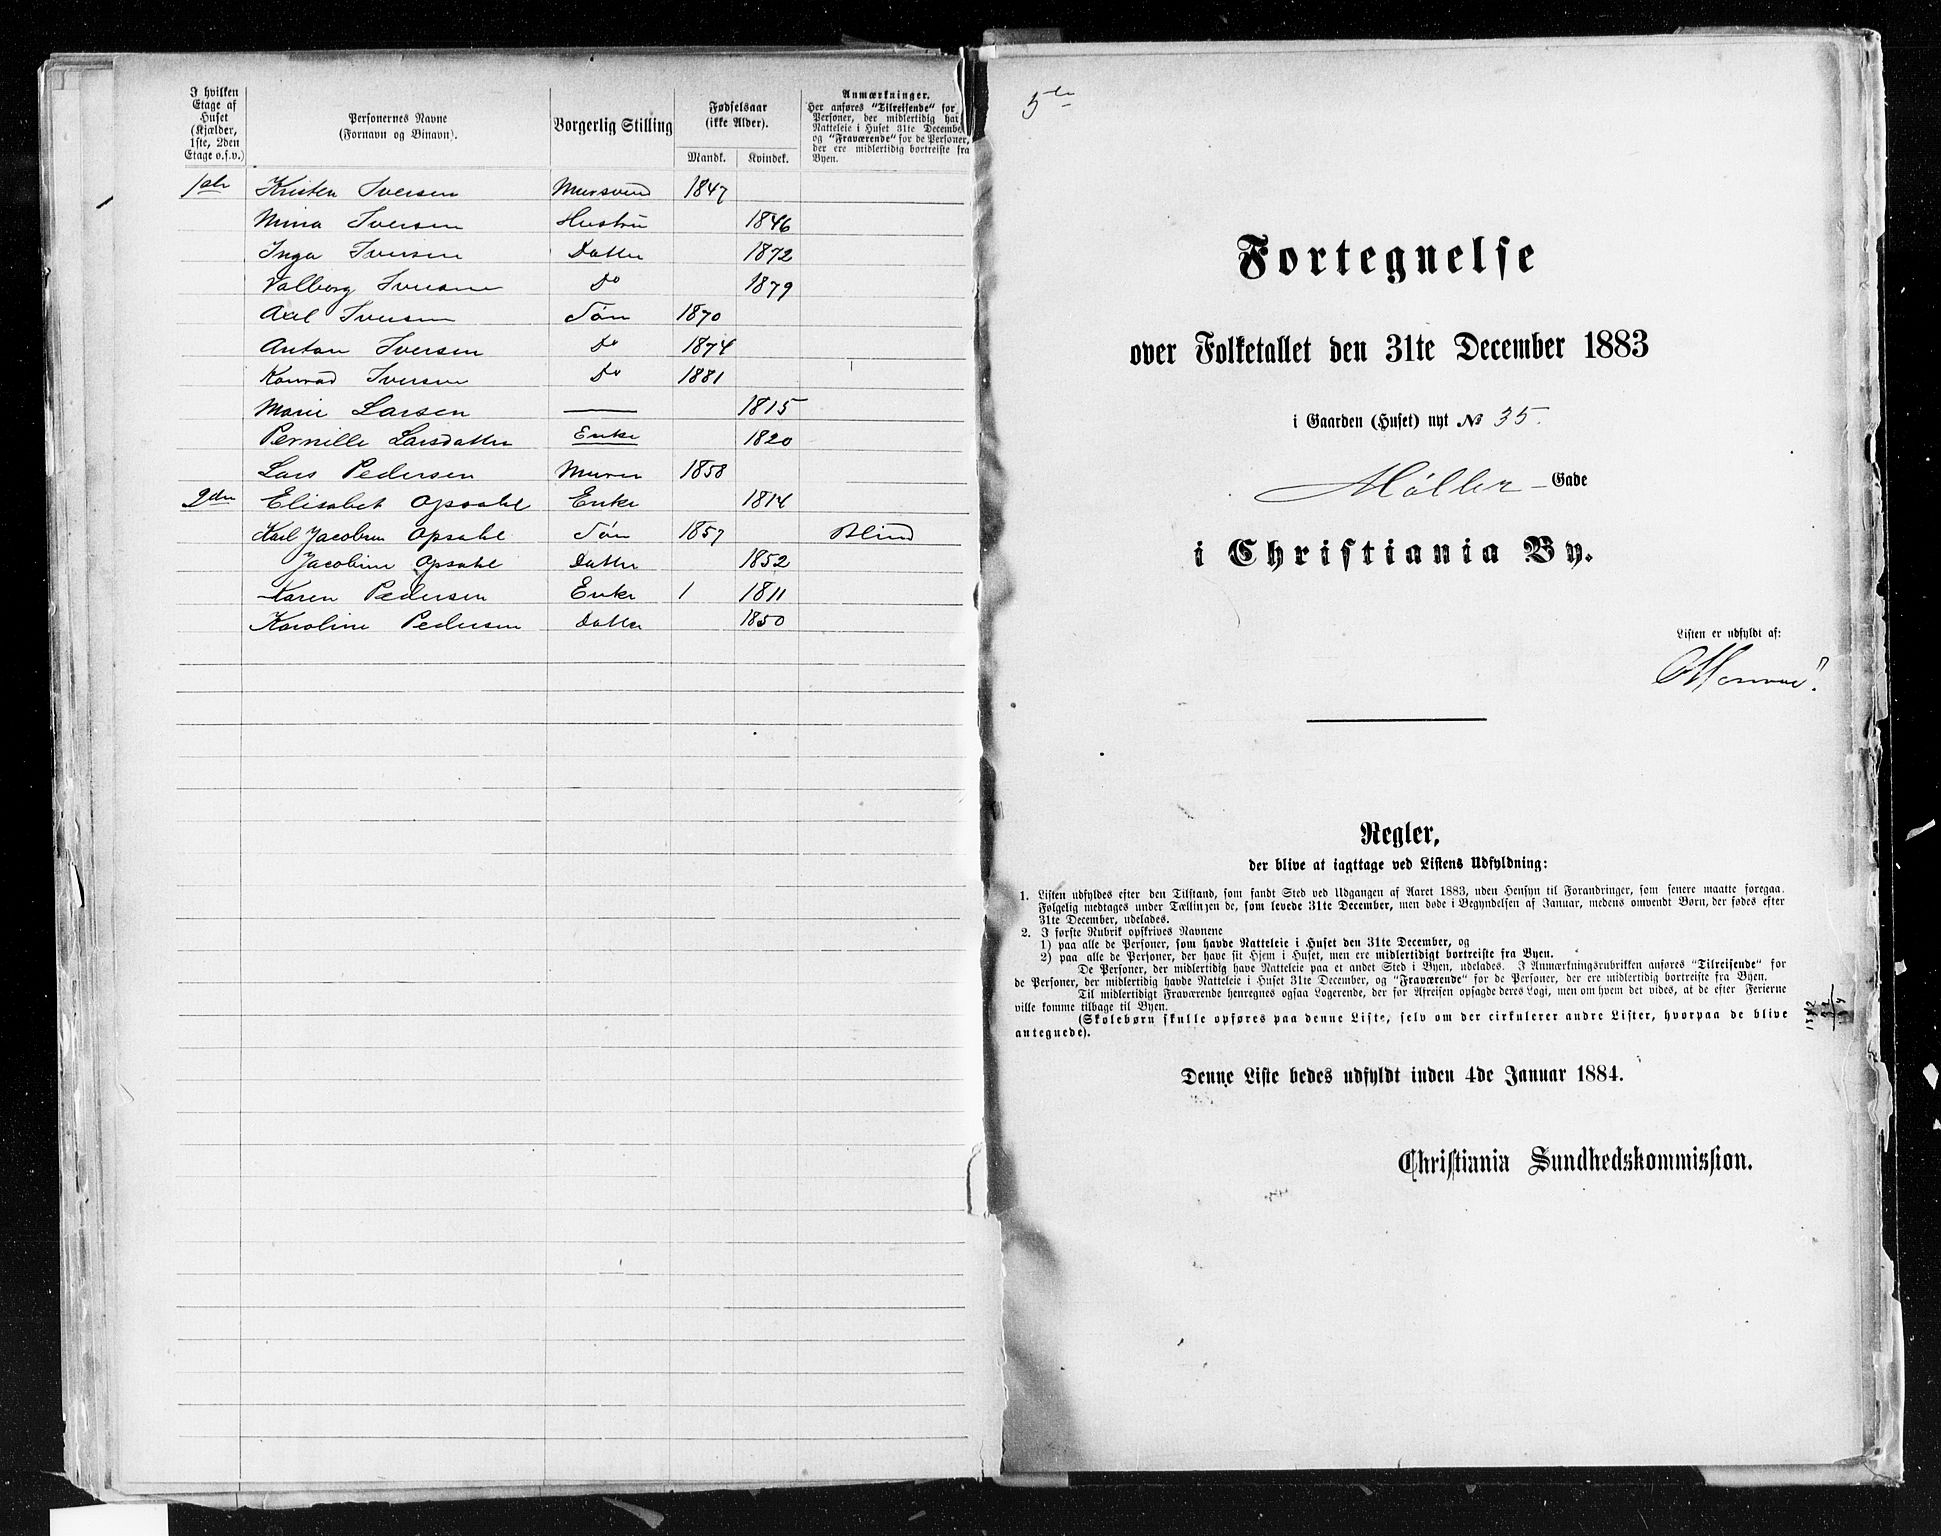 I hvilken Etage af Huset (Kjælder, 1ste, 2den Etage o.s.v.) | Personernes Navne (Fornavn og Binavn). | Borgerlig Stilling | Fødselsaar (ikke Alder). Mandk. Kvindek. | Anmærkninger. Her anføres "Tilreisende" for Personer, der midlertidig har Natteleie i Huset 31te December og "Fraværende" for de Personer, der ere midlertidig bortreiste fra Byen.
1ste Kristen Iversen Mursvend 1847
Mina Iversen Hustru 1846
Inga Iversen Datter 1872
Valborg Iversen Do 1879
Axel Iversen Søn 1870
Anton Iversen Do 1874
Konrad Iversen Do 1881
Marie Larsen — 1815
Pernille Larsdatter Enke 1820
Lars Pedersen Murer 1858
2den Elisabet Opsahl Enke 1814
Karl Jacobsen Opsahl Søn 1857 Blind
Jacobine Opsahl Datter 1852
Karen Pedersen Enke 1 1811
Karoline Pedersen Datter 1850
5te
Fortegnelse
over Folketallet den 31te December 1883
i Gaarden (Huset) nyt № 35.
Møller-Gade
i Christiania By.
Listen er udfyldt af:
Regler,
der blive at iagttage ved Listens Udfyldning:
1. Listen udfyldes efter den Tilstand, som fandt Sted ved Udgangen af Aaret 1883, uden Hensyn til Forandringer, som senere maatte foregaa.
Følgelig medtages under Tællingen de, som levede 31te December, men døde i Begyndelsen af Januar, medens omvendt Børn, der fødes efter
31te December, udelades.
2. I første Rubrik opskrives Navnene
1) paa alle de Personer, som havde Natteleie i Huset den 31te December, og
2) paa alle de Personer, der have sit Hjem i Huset, men ere midlertidigt bortreiste fra Byen.
De Personer, der midlertidig have Natteleie paa et andet Sted i Byen, udelades. I Anmærkningsrubrikken anføres "Tilreisende" for
de Personer, der midlertidig havde Natteleie i Huset 31te December, og "Fraværende" for de Personer, der ere midlertidig bortreiste fra Byen.
Til midlertidigt Fraværende henregnes ogsaa Logerende, der før Afreisen opsagde deres Logi, men om hvem det vides, at de efter Ferierne
ville komme tilbage til Byen.
(Skolebørn skulle opføres paa denne Liste, selv om der cirkulerer andre Lister, hvorpaa de blive
antegnede).
Denne Liste bedes udfyldt inden 4de Januar 1884.
Christiania Sundhedskommission.